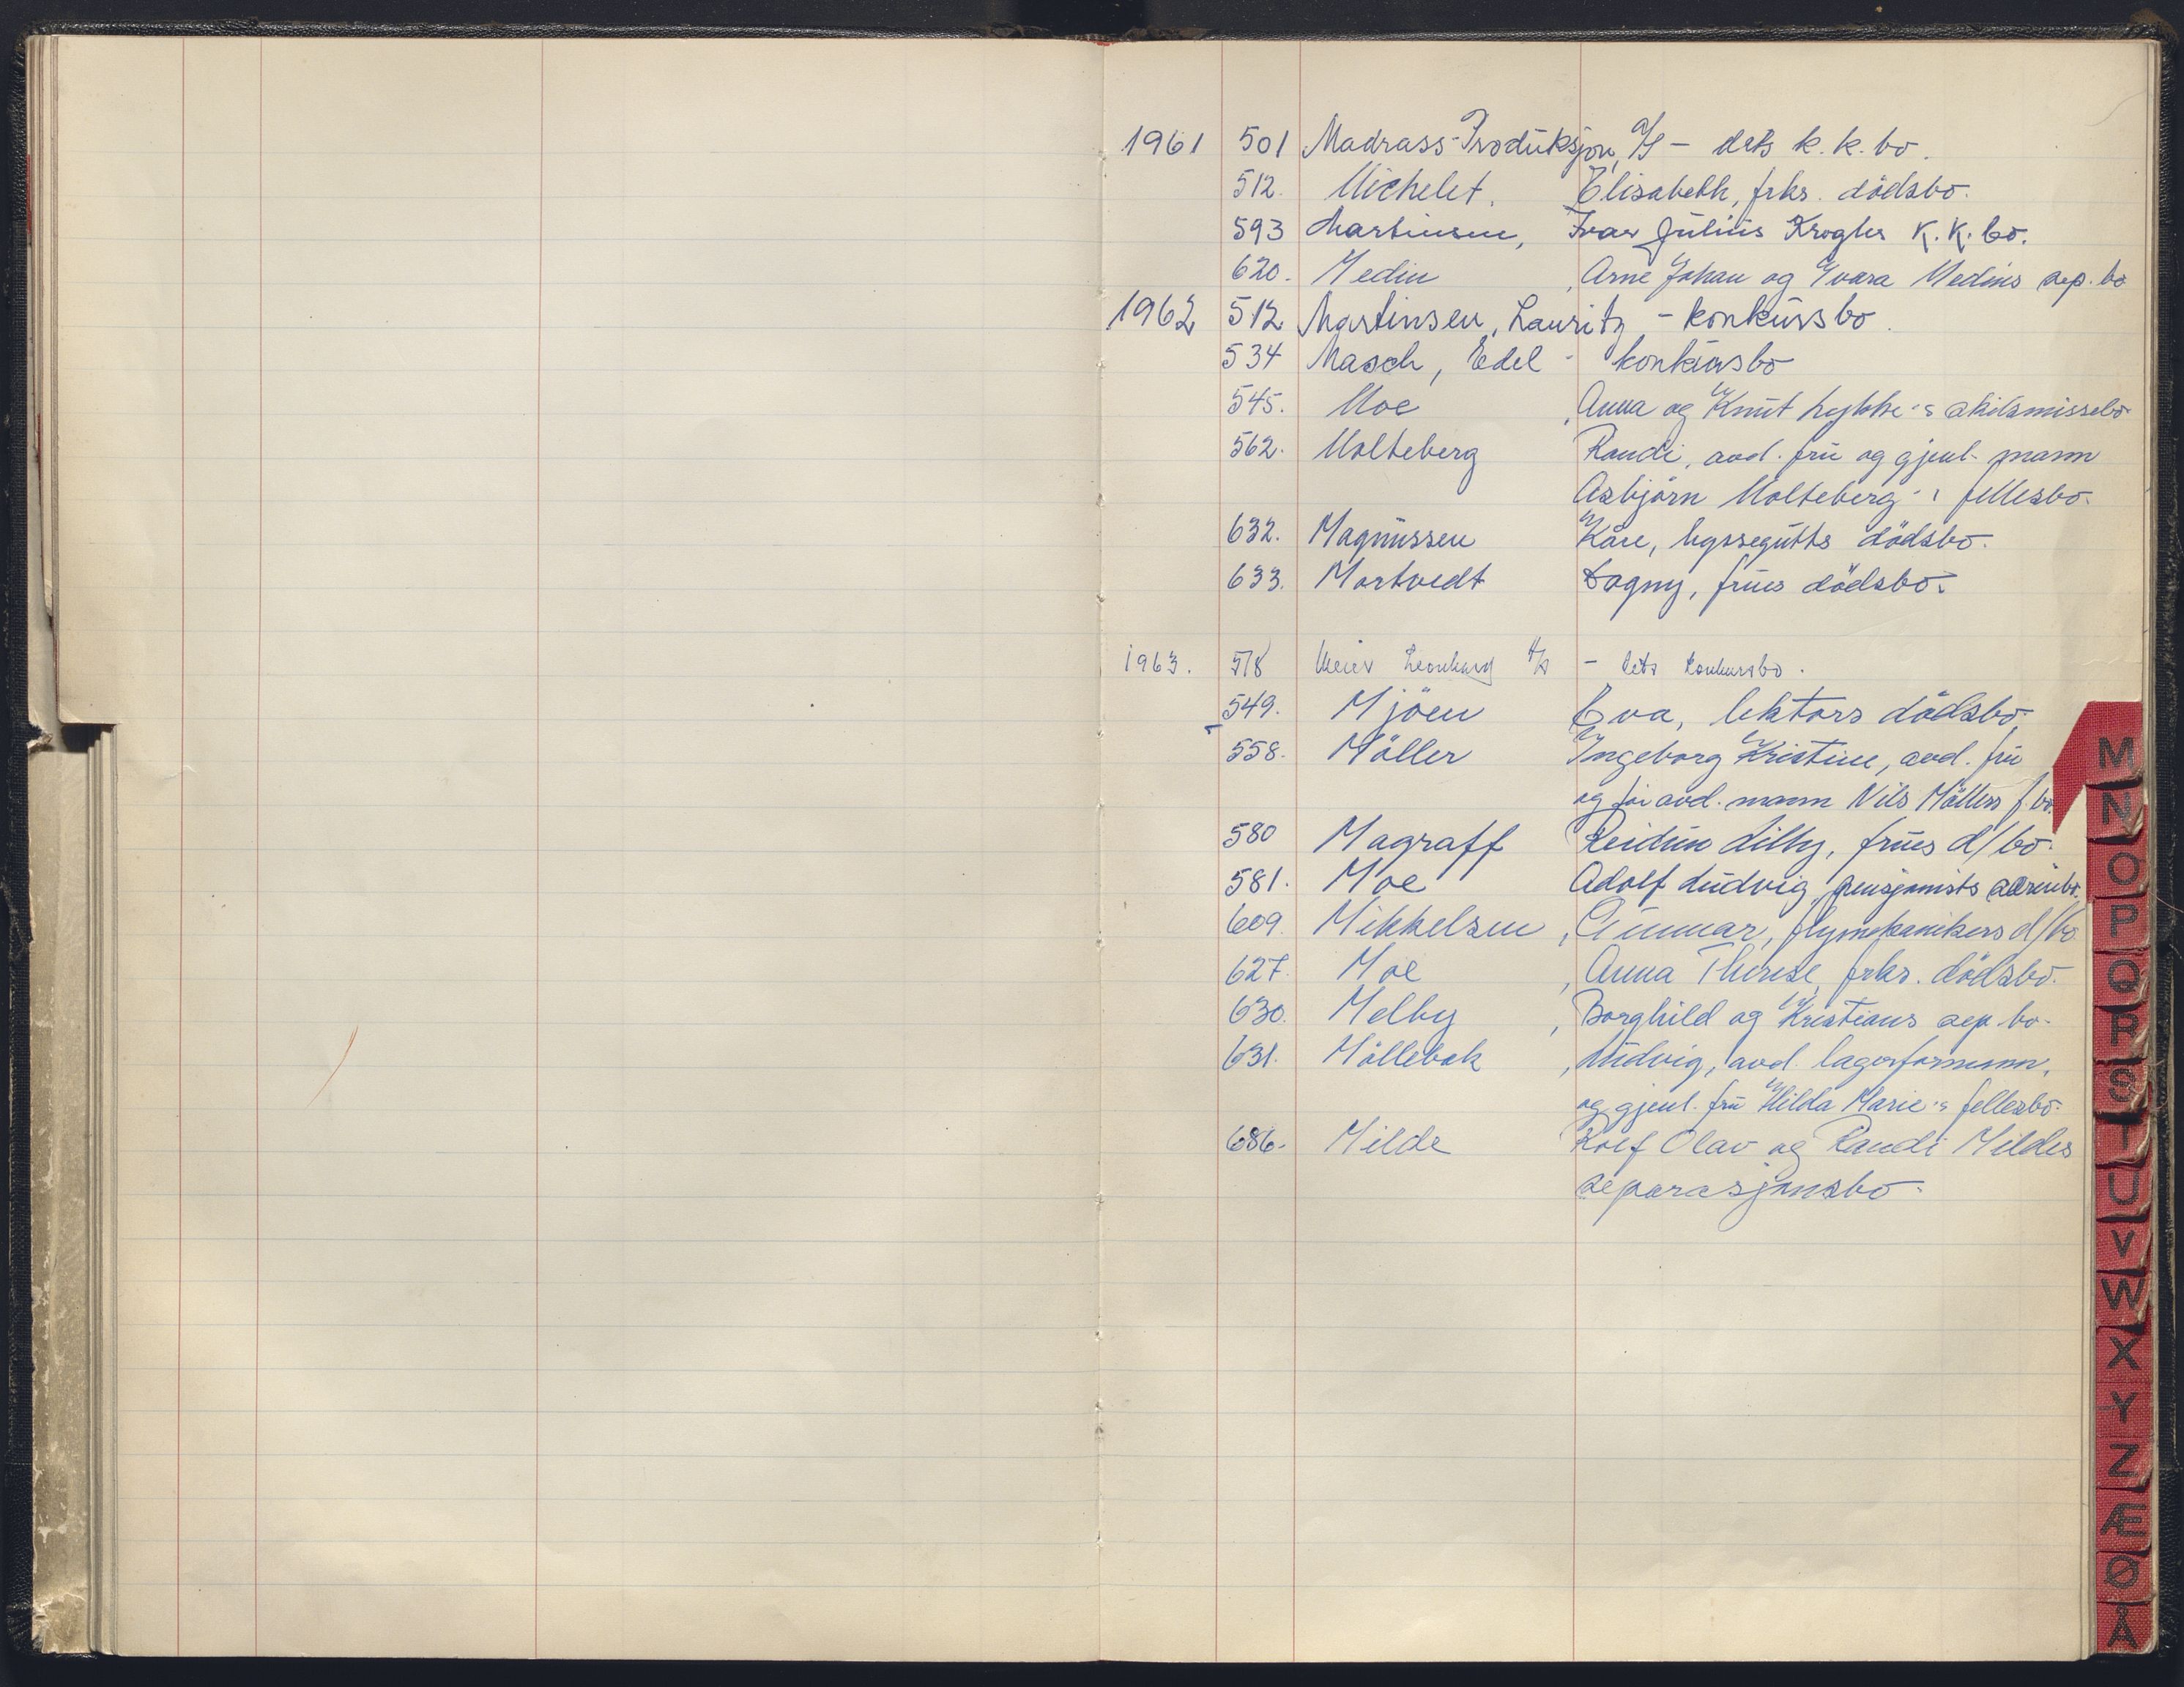 1961 501 Madrass-Produksjon, A/S - dets k.k. bo.
512. Michelet. Elisabeth, frks. dödsbo.
593 Martinsen, Ivar Julius Kroghs K.K. bo.
620. Medin , Arne Johan og Yvara Medins sep. bo
1962 512 Martinsen, Lauritz - konkursbo.
534 Masch, Edel - konkursbo
545. Moe , Anna og Knut skilsmissebo
562. Molteberg Randi, avd. fru og gjenl. mann
Asbjörn Molteberg's fellesbo.
632. Magnussen Kåre, hyssegutts dödsbo.
633. Mortvedt Dagny, frues dödsbo.
1963. 518 Meier A/S - dets konkursbo.
549. Mjöen Eva, lektors dödsbo.
558. Möller Ingeborg Kristine, avd. fru
og för avd. mann Nils Möllers f. bo.
580 Magraff Reidun Lilly, frues d/bo.
581. Moe Adolf Ludvig, pensjonists
609. Mikkelsen , Gunnar, flymekanikers d/bo
627. Moe , Anna Therese, frks. dödsbo.
630. Melby , Borghild og Kristians sep. bo.
631. Möllebak , Ludvig, avd. lagerformann,
og gjenl. fru Hilda Marie's fellesbo.
686. Milde Rolf Olav og Randi Mildes
separasjonsbo.
M
N
O
P
Q
R
S
T
U
V
W
X
Y
Z
Æ
Ø
Å